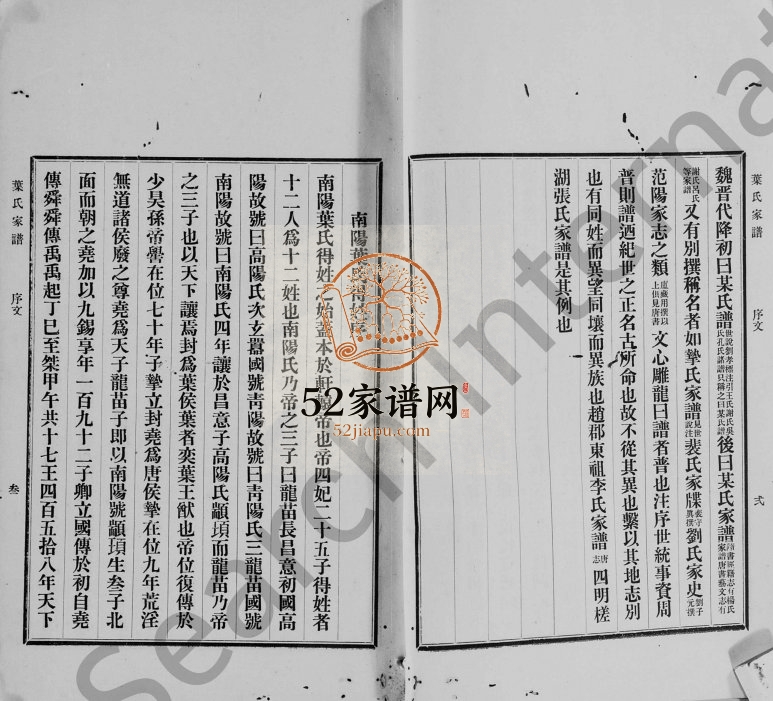 葉氏家譜
序文
弍
魏晉代降初曰某氏譜世說劉孝標注引王氏謝氏吳氏孔氏諸譜只稱之曰某氏譜後曰某氏家譜隋書經籍志有楊氏家譜唐書藝文志有
謝氏呂氏等家譜又有別撰稱名者如摯氏家譜見世說注裴氏家牒裴守眞撰劉氏家史劉子元撰
范陽家志之類盧藏用撰以上俱見唐書文心雕龍曰譜者普也注序世統事資周
普則譜迺紀世之正名古所命也故不從其異也繫以其地志別
也有同姓而異望同壤而異族也趙郡東祖李氏家譜唐志四明槎
湖張氏家譜是其例也
南陽葉氏得姓序
南陽葉氏得姓之始蓋本於軒轅帝也帝四妃二十五子得姓者
十二人爲十二姓也南陽氏乃帝之三子曰龍苗長昌意初國高
陽故號曰高陽氏次玄囂國號靑陽故號曰靑陽氏三龍苗國號
南陽故號曰南陽氏四年讓於昌意子高陽氏顓頊而龍苗乃帝
之三子也以天下讓焉封爲葉侯葉者奕葉王猷也帝位復傳於
少昊孫帝嚳在位七十年子摯立封堯爲唐侯摯在位九年荒淫
無道諸侯廢之尊堯爲天子龍苗子即以南陽號顓頊生叁子北
面而朝之堯加以九錫享年一百九十二子卿立國傳於初自堯
傳舜舜傳禹禹起丁巳至桀甲午共十七王四百五拾八年天下
葉氏家譜
序文
叁
52家谱网
52jiapu.com
Search International